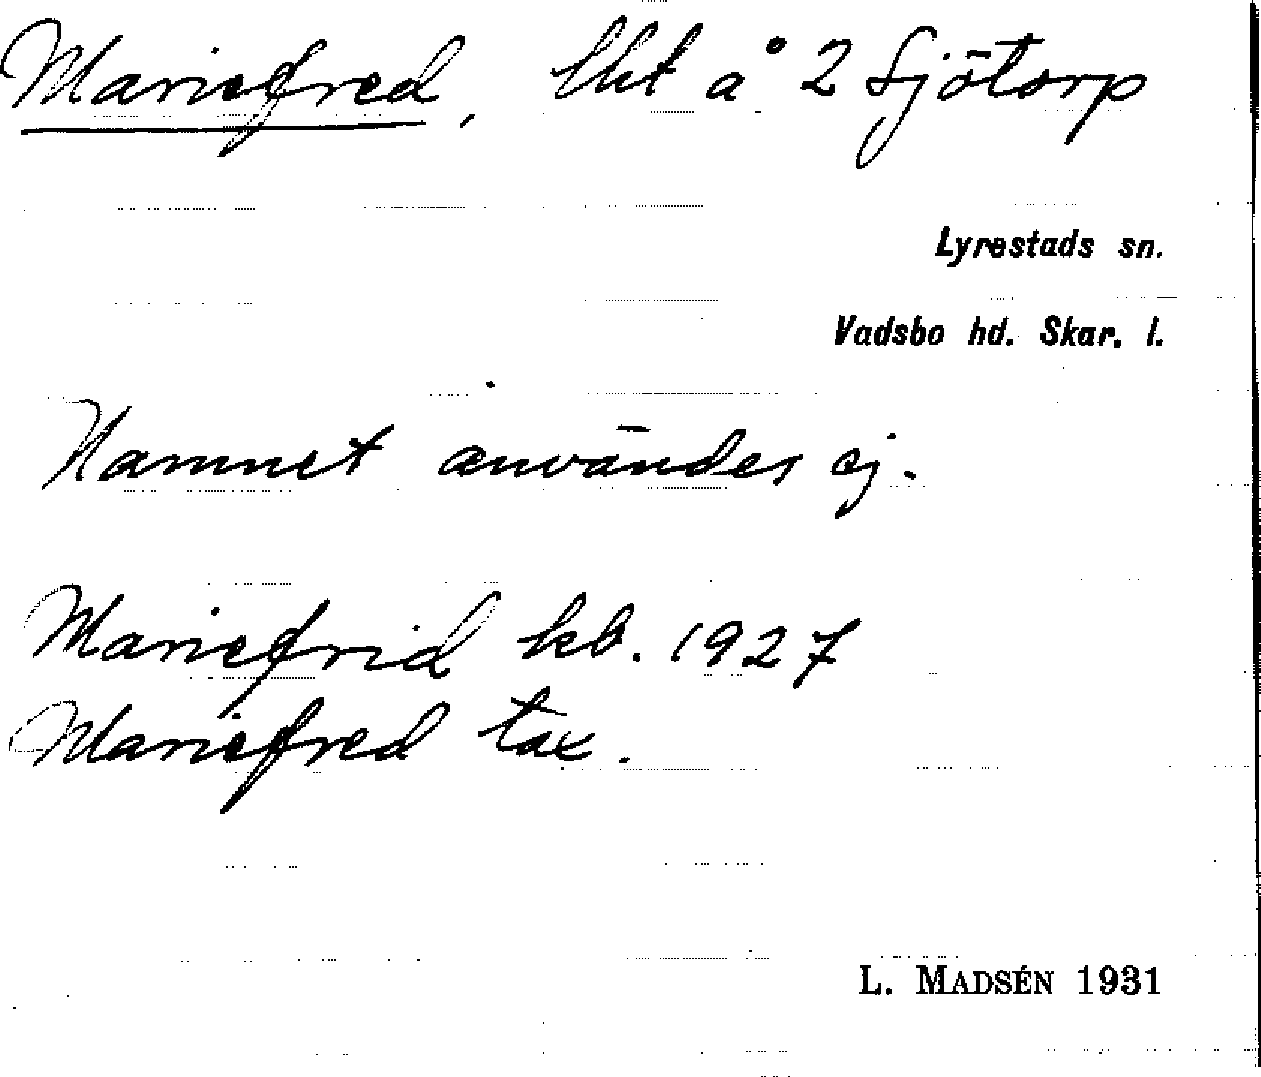 Mariefred, lht å 2 Sjötorp
Lyrestads sn.
Vadsbo hd. Skar. l.
Namnet användes ej.
Mariefrid kb. 1927
Mariefred tax.
L. MADSÉN 1931